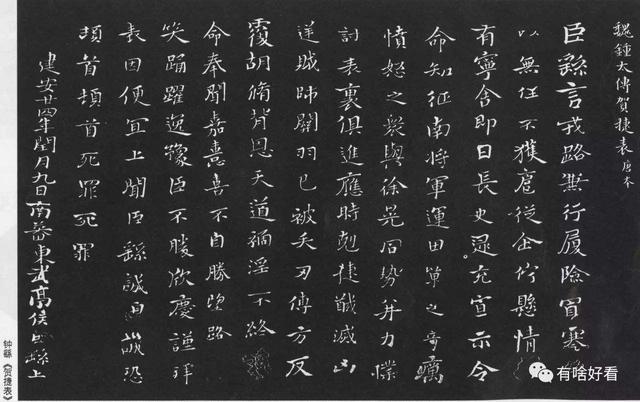 魏鍾大傅賀捷表唐本
臣繇言戎路兼行履險冒寒
以無任不獲扈從企佇懸情
有寧舍即日長史逯充宣示令
命知征南將軍運田單之奇厲
憤怒之衆與徐晃同勢并力撲
討表裏俱進應時剋捷馘滅凶
逆賊帥關羽已被矢刃傅方反
覆胡脩背恩天道禍淫不終
命奉聞嘉憙喜不自勝望路
笑踊躍逸豫臣不勝欣慶謹拜
表因便宜上聞臣繇誠皇誠恐
頓首頓首死罪死罪
建安廿四年閏月九日南蕃東武亭侯臣繇上
钟繇《贺捷表》
有啥好看